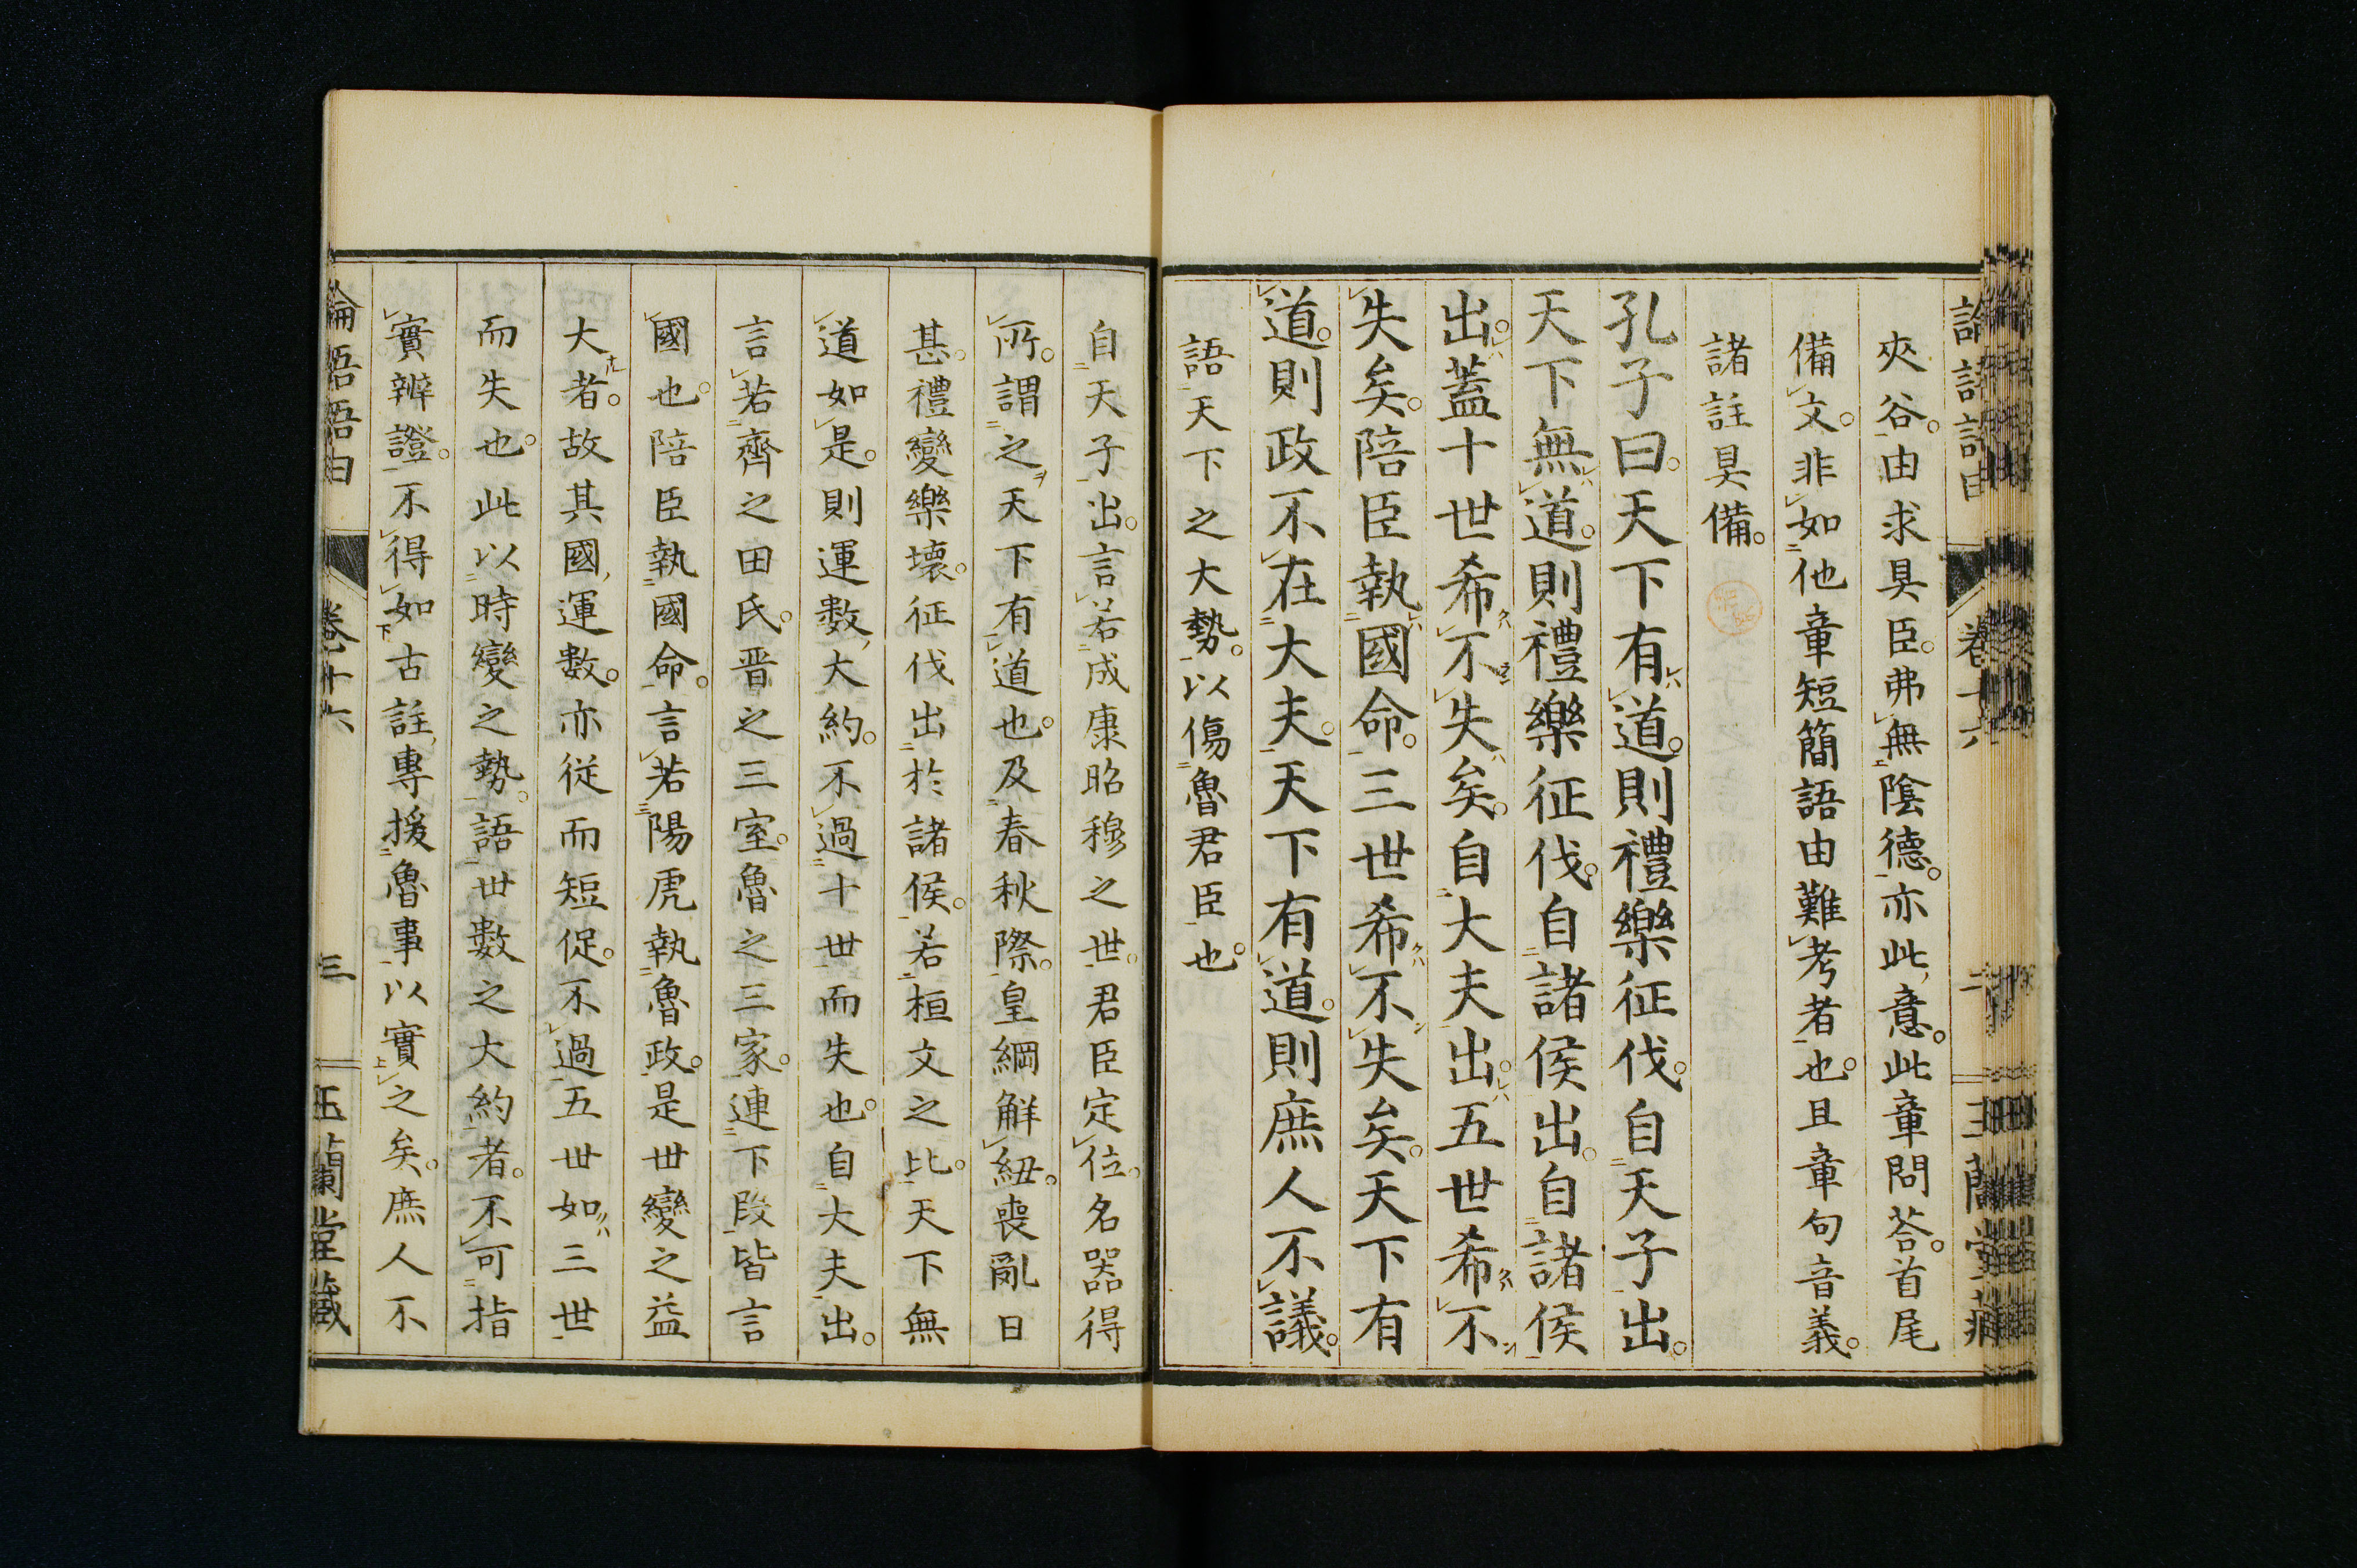 夾谷。由求具臣。弗無陰德。亦此意。此章問荅。首尾
備文。非如他章短簡語由難考者也。且章句音義。
諸註具備。
孔子曰。天下有道。則禮樂征伐。自天子出。
天下無道。則禮樂征伐。自諸侯出。自諸侯
出。蓋十世希不失矣。自大夫出。五世希不
失矣。陪臣執國命。三世希不失矣。天下有
道。則政不在大夫。天下有道。則庶人不議。
語天下之大勢。以傷魯君臣也。
自天子出。言若成康昭穆之世。君臣定位。名器得
所。謂之天下有道也。及春秋際。皇綱解紐。喪亂日
甚。禮變樂壞。征伐出於諸侯。若桓文之比。天下無
道如是。則運數大約。不過十世而失也。自大夫出。
言若齊之田氏。晋之三室。魯之三家。連下段皆言
國也。陪臣執國命。言若陽虎執魯政。是世變之益
大者。故其國運數。亦從而短促。不過五世如三世
而失也。此以時變之勢。語世數之大約者。不可指
實辨證。不得如古註專援魯事以實之矣。庶人不
論語語由 卷十六 三 玉蘭堂藏